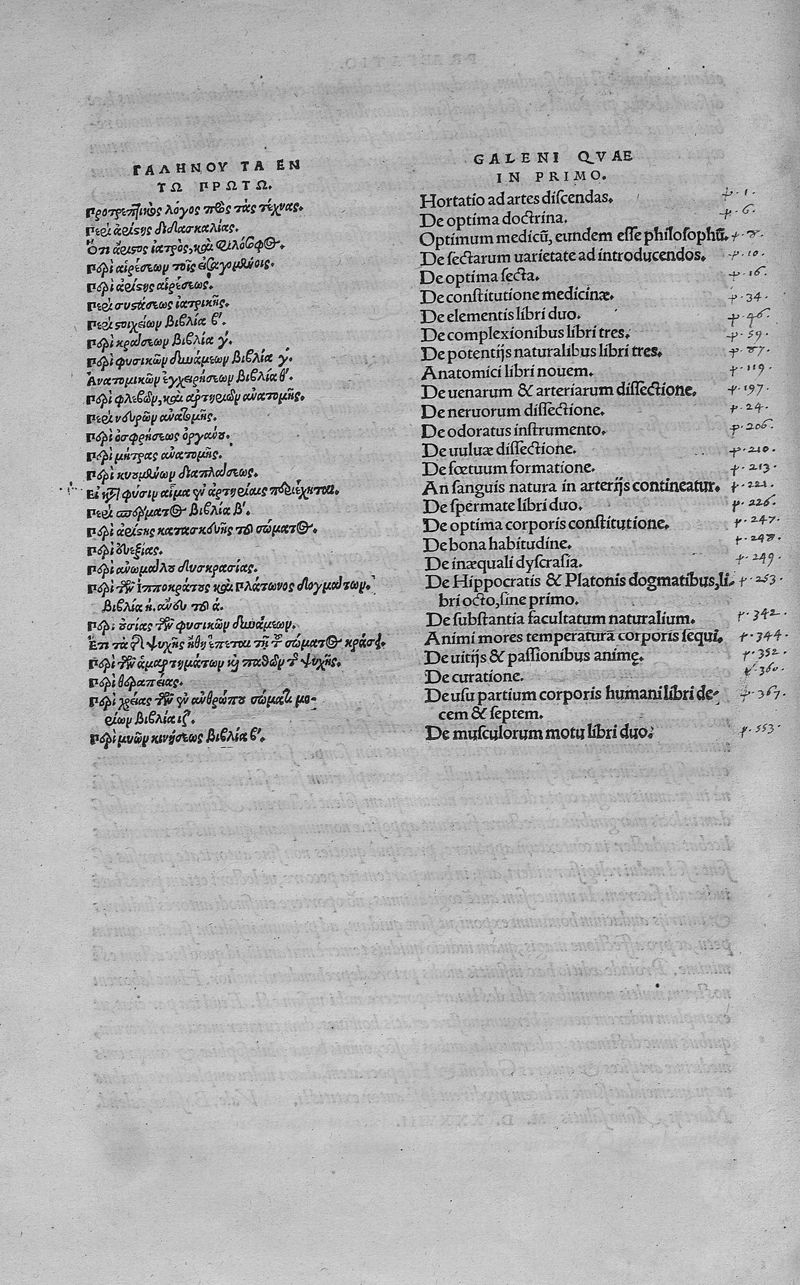 ΓΑΛΗΝΟΥ ΤΑ ΕΝ
ΤΩ ΠΡΩΤΩ.
Προτρεπτικὸς λόγος πρὸς τὰς τέχνας.
Περὶ ἀρίστης διδασκαλίας.
Ὅτι ἄριστος ἰατρὸς, καὶ φιλόσοφος.
Περὶ αἱρέσεων τοῖς εἰσαγομένοις.
Περὶ ἀρίστης αἱρέσεως.
Περὶ συστάσεως ἰατρικῆς.
Περὶ στοιχείων βιβλία β'.
Περὶ κράσεων βιβλία γ'.
Περὶ φυσικῶν δυνάμεων βιβλία γ'.
Ἀνατομικῶν ἐγχειρήσεων βιβλία θ'.
Περὶ φλεβῶν, καὶ ἀρτηριῶν ἀνατομῆς.
Περὶ νεύρων ἀνατομῆς.
Περὶ ὀσφρήσεως ὀργάνου.
Περὶ μήτρας ἀνατομῆς.
Περὶ κυουμένων διαπλάσεως.
Εἰ κατὰ φύσιν αἷμα ἐν ἀρτηρίαις περιέχεται.
Περὶ σπέρματος βιβλία β'.
Περὶ ἀρίστης κατασκευῆς τοῦ σώματος.
Περὶ εὐεξίας.
Περὶ ἀνωμάλου δυσκρασίας.
Περὶ τῶν ἱπποκράτους καὶ πλάτωνος δογμάτων,
βιβλία η. ἄνευ τοῦ ά.
Περὶ οὐσίας τῶν φυσικῶν δυνάμεων.
Ὅτι τὰ τῆς ψυχῆς ἤθη ἕπεται τῇ τοῦ σώματος κράσει.
Περὶ τῶν ἁμαρτημάτων καὶ παθῶν τῆς ψυχῆς.
Περὶ θεραπείας.
Περὶ χρείας τῶν ἐν ἀνθρώπου σώματι μο-
ρίων βιβλία ιζ'.
Περὶ μυῶν κινήσεως βιβλία β'.
GALENI QVAE
IN PRIMO.
Hortatio ad artes discendas. p. 1.
De optima doctrina. p. 6.
Optimum medicū, eundem esse philosophū. p. 8.
De sectarum uarietate ad introducendos. p. 10.
De optima secta. p. 16.
De constitutione medicinæ. p. 34.
De elementis libri duo. p. 46.
De complexionibus libri tres. p. 59.
De potentijs naturalibus libri tres. p. 87.
Anatomici libri nouem. p. 119.
De uenarum & arteriarum dissectione. p. 197.
De neruorum dissectione. p. 24.
De odoratus instrumento. p. 206.
De uuluæ dissectione. p. 210.
De fœtuum formatione. p. 213.
An sanguis natura in arterijs contineatur. p. 221.
De spermate libri duo. p. 226.
De optima corporis constitutione. p. 247.
De bona habitudine. p. 248.
De inæquali dyscrasia. p. 249.
De Hippocratis & Platonis dogmatibus, li- p. 253.
bri octo, sine primo.
De substantia facultatum naturalium. p. 342.
Animi mores temperaturā corporis sequi. p. 344.
De uitijs & passionibus animę. p. 352.
De curatione. p. 360.
De usu partium corporis humani libri de- p. 367.
cem & septem.
De musculorum motu libri duo. p. 553.